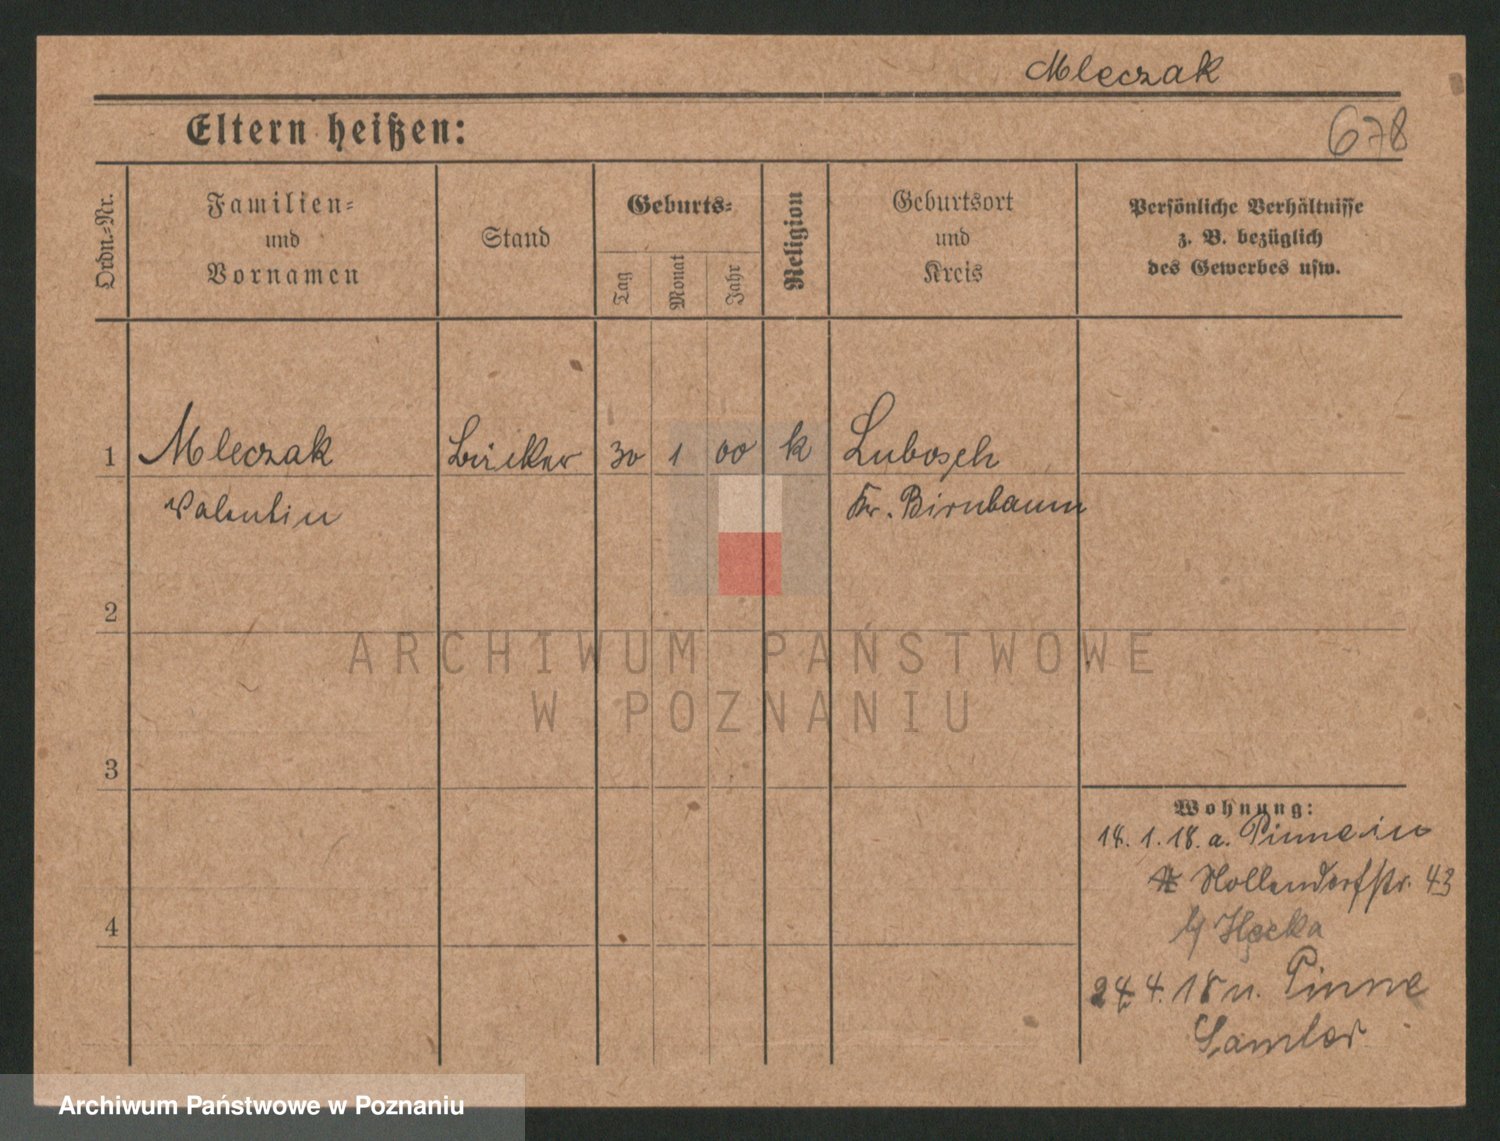 Mleczak
Eltern heißen:
678
Ordn.-Nr.
Familien-
und
Vornamen
Stand
Geburts-
Tag
Monat
Jahr
Religion
Geburtsort
und
Kreis
Persönliche Verhältnisse
z. B. bezüglich
des Gewerbes usw.
1
Mleczak
30
1
00
k
Lubosch
Valentin
Kr. Birnbaum
2
ARCHIWUM PAŃSTWOWE
W POZNANIU
3
Wohnung:
18. 1. 18. a. Pinne in
Nollendorfstr. 43
4
4. 18 n. Pinne
Archiwum Państwowe w Poznaniu